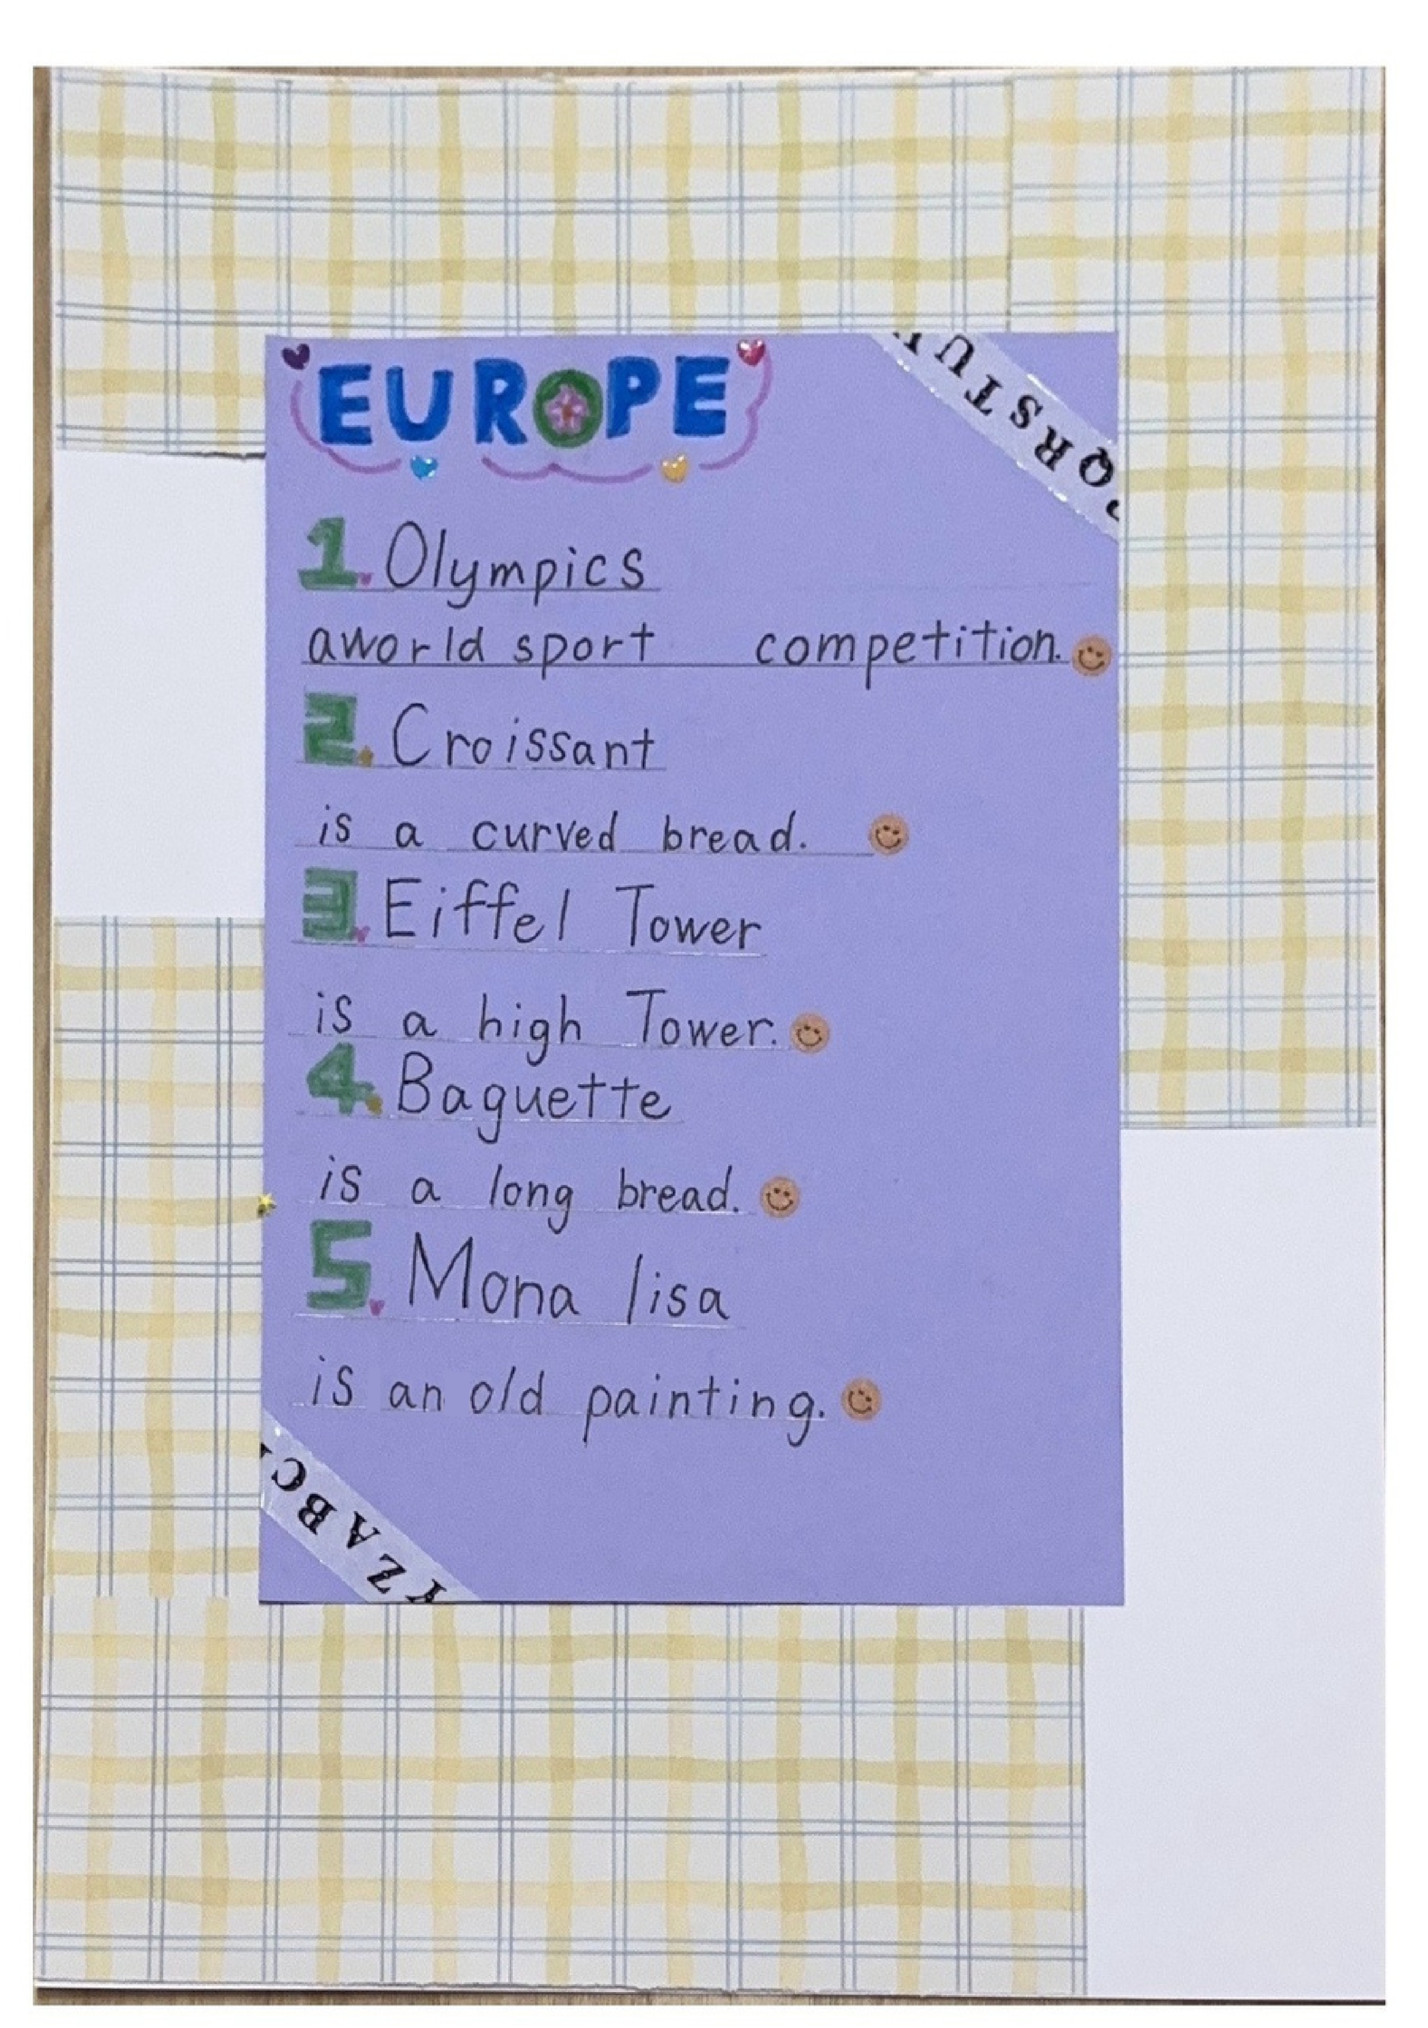 EUROPE
QRSTU
1. Olympics
aworld sport competition.
2. Croissant
is a curved bread.
3. Eiffel Tower
is a high Tower.
4. Baguette
is a long bread.
5. Mona lisa
is an old painting.
YZABC